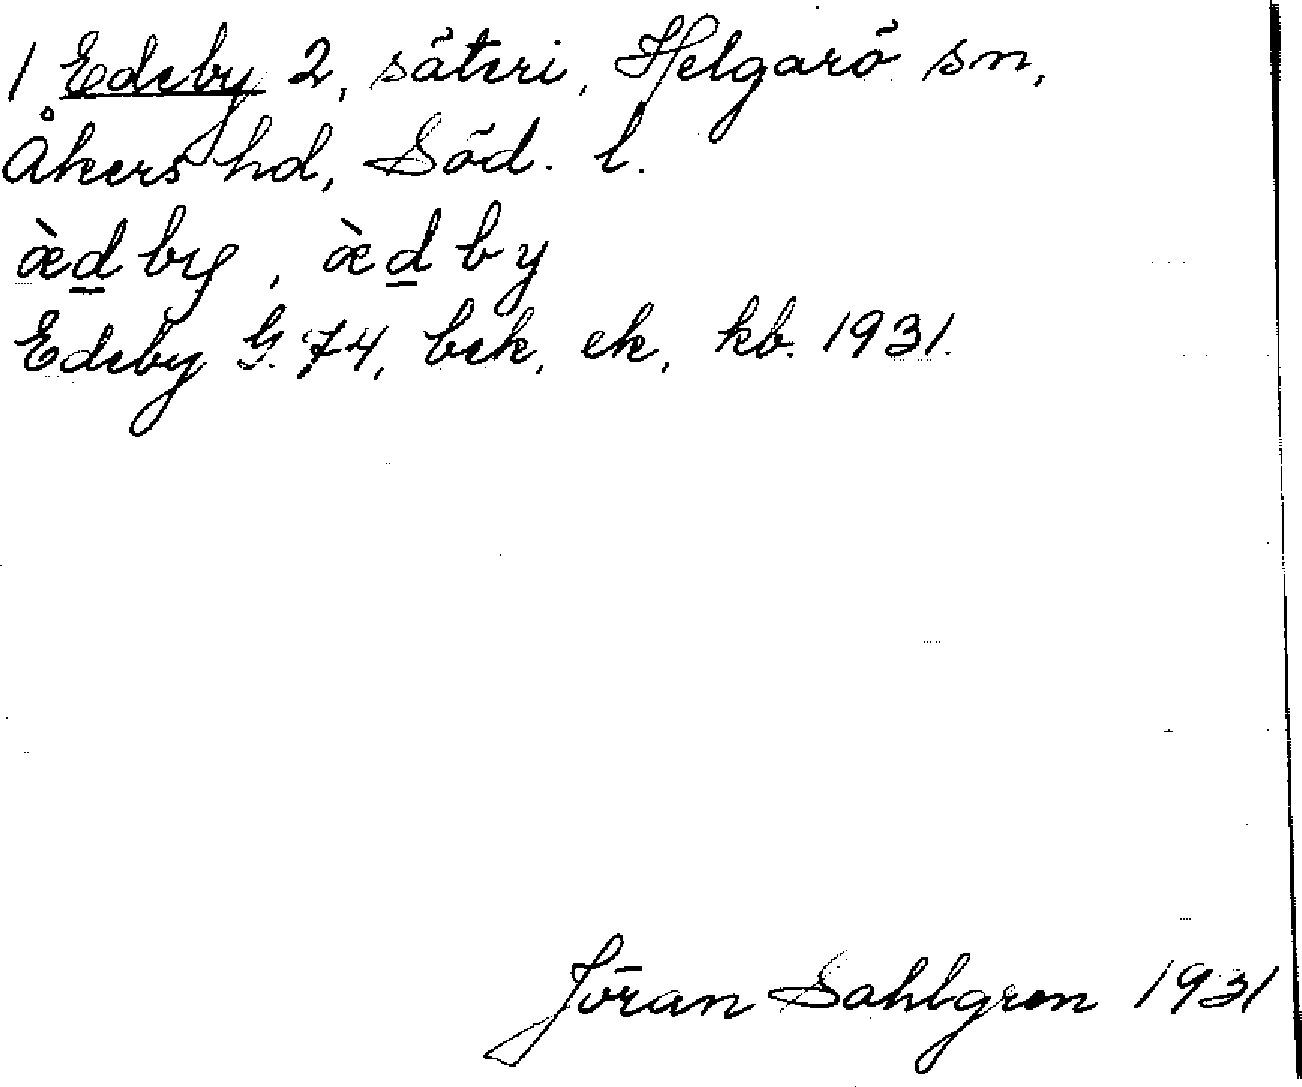 1 Edeby 2, säteri, Helgarö sn,
Åkers hd, Söd. l.
æ̀d by, æ̀d by
Edeby G. 74, bek, ek, kb. 1931.
Jöran Sahlgren 1931